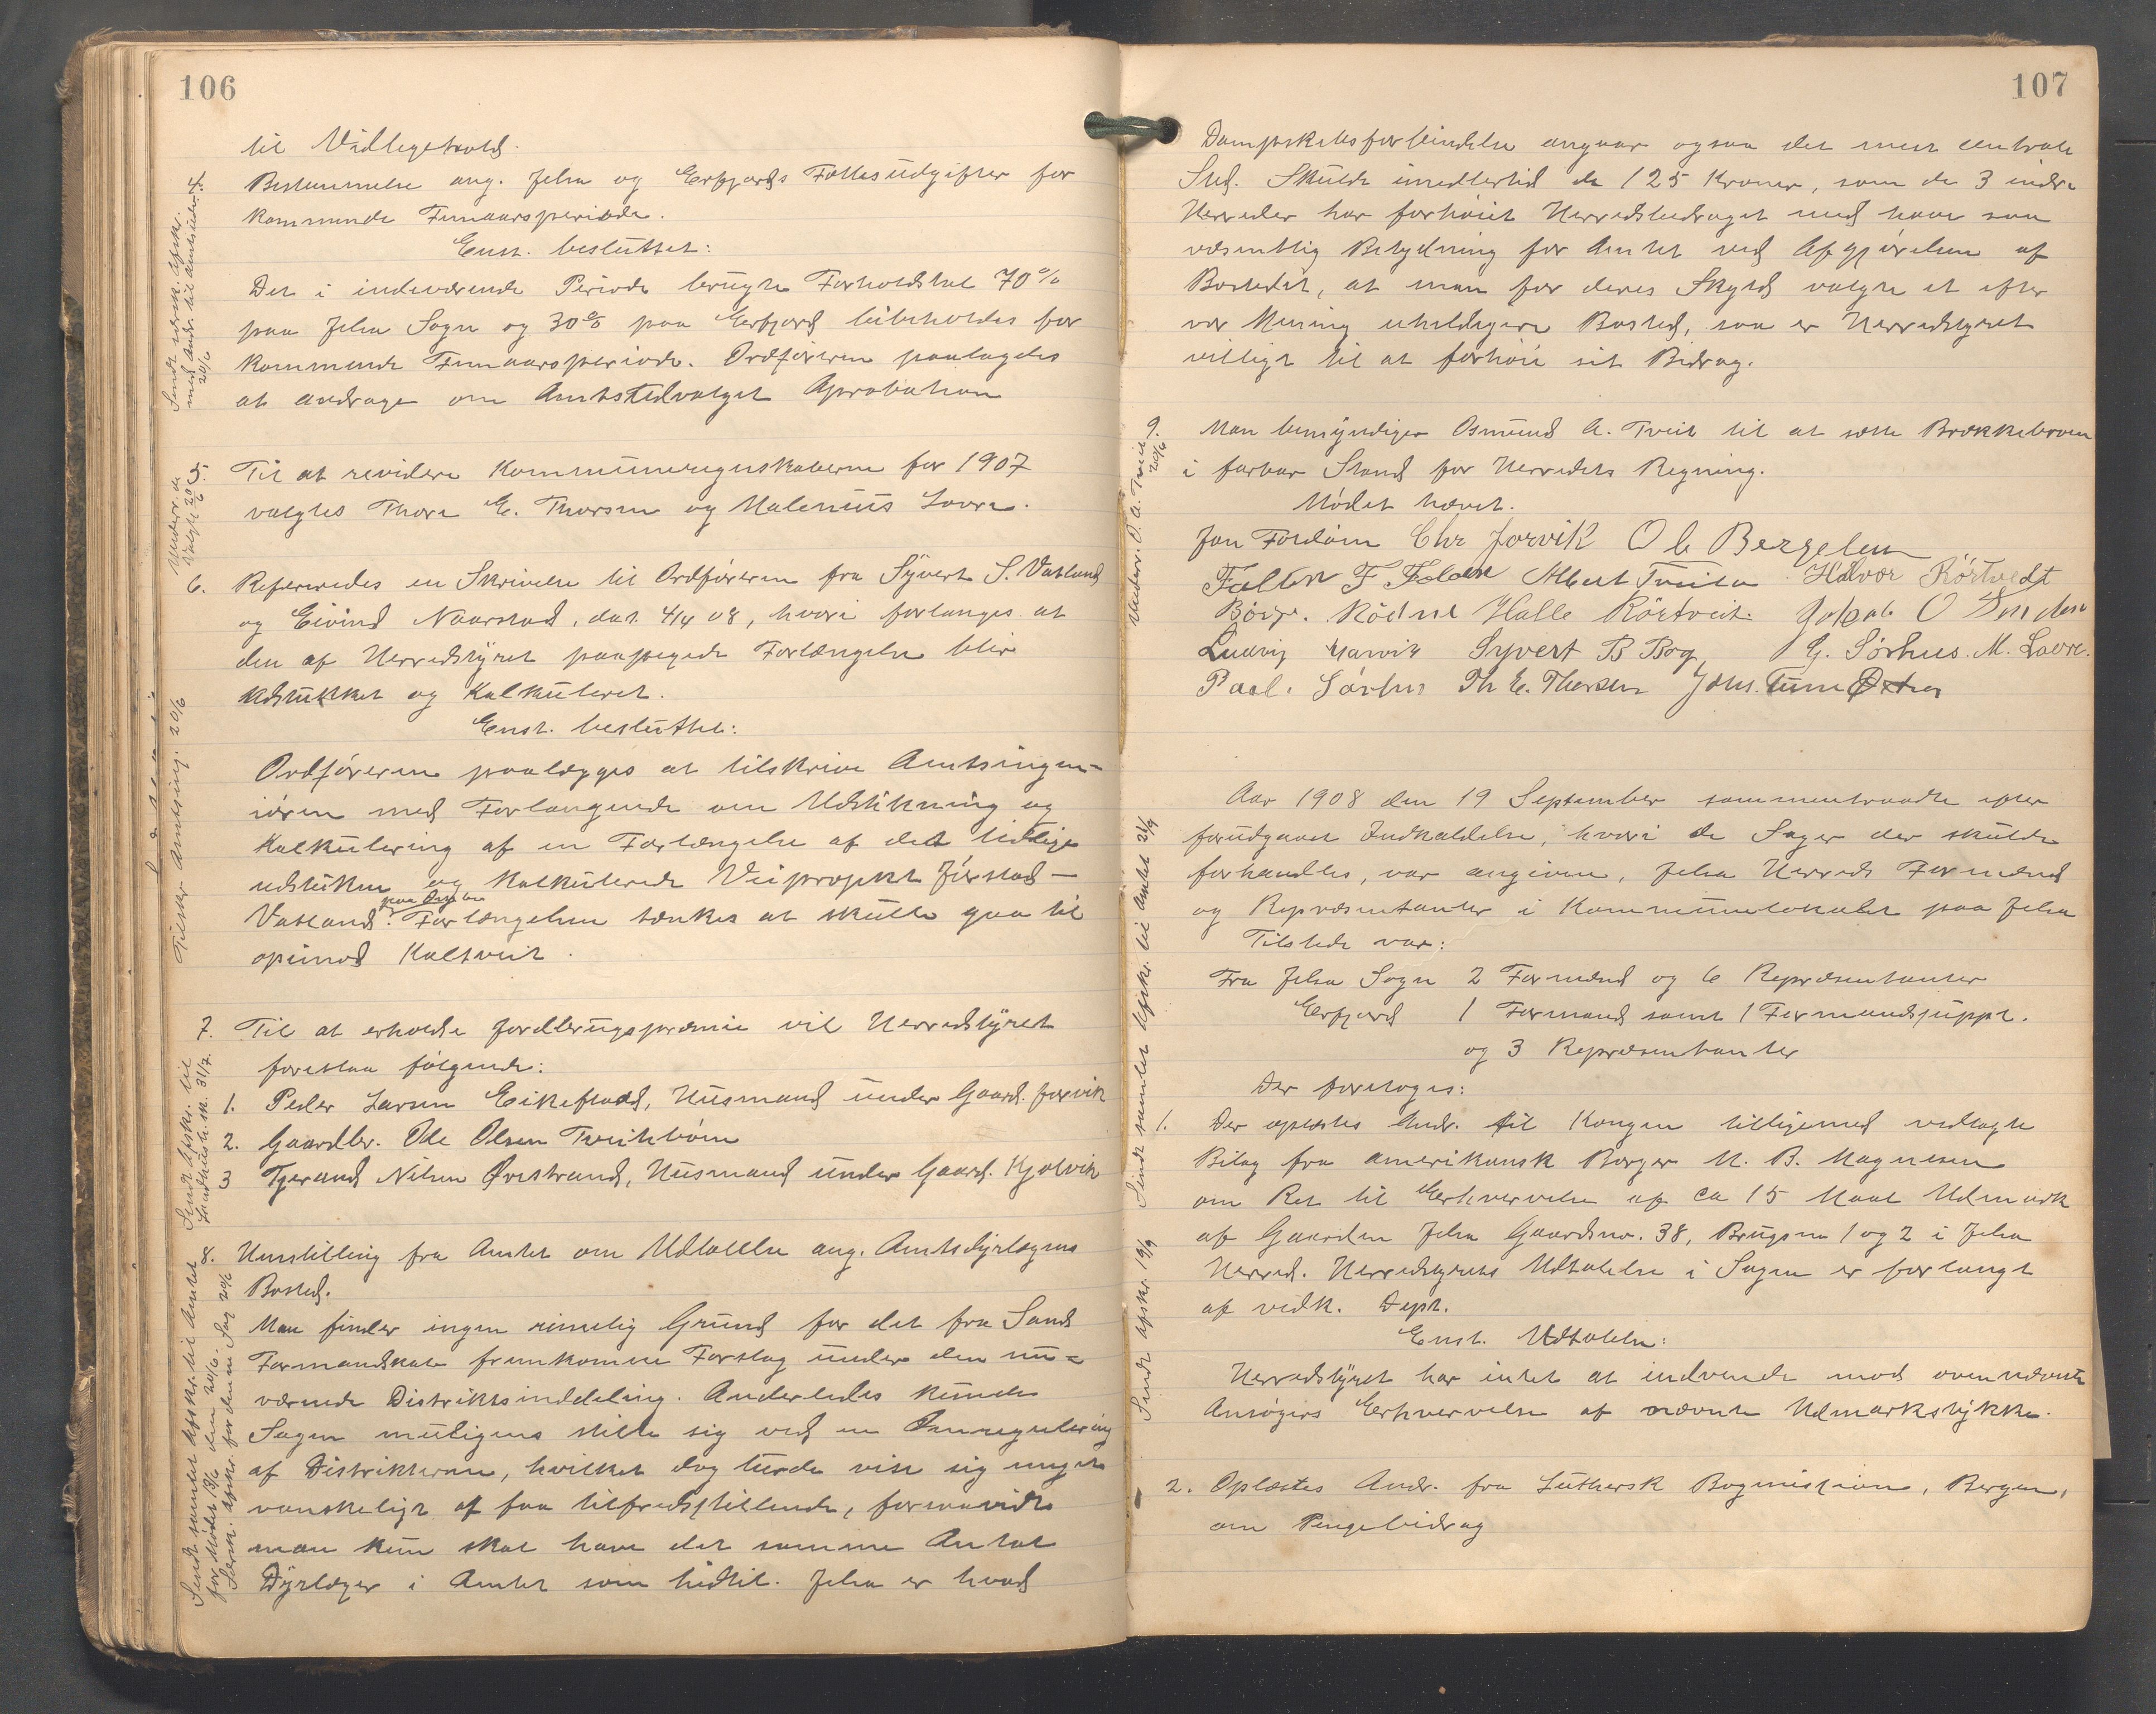 106
til Vedligehold.
4. Bestemmelse ang. Jelsa og Erfjords Fællesudgifter for
kommende Femaarsperiode.
Enst. besluttet:
Det i indeværende Periode brugte Forholdstal 70 %
paa Jelsa Sogn og 30 % paa Erfjord bibeholdes for
kommende Femaarsperiode. Ordføreren paalagdes
at andrage om Amtstedvalget Aprobation
Sendt særsk. Afskr.
med Andr. til Amtstuen
20/6
5. Til at revidere Kommuneregnskaberne for 1907
valgtes Thore E. Thorsen og Malenius Lovra.
Underr. de
Valgte 20/6
6. Refereredes en Skrivelse til Ordføreren fra Syvert S. Vatland
og Eivind Naarstad, dat. 4/4 08, hvori forlanges at
den af Herredstyret paapegede Forlængelse blir
udstukket og Kalkuleret.
Enst. besluttet:
Ordføreren paalægges at tilskrive Amtsingen-
iøren med Forlangende om Udstikning og
Kalkulering af en Forlængelse af det tidlige
udstukne og kalkulerede Veiprojekt Jørstad -
paa Ombo
Vatland. Forlængelsen tænkes at skulle gaa til
opimod Kaltveit.
Tilskr. Amtsing. 20/6
7. Til at erholde Jordbrugspræmie vil Herredstyret
foreslaa følgende:
1. Peder Larsen Eikeflaad, Husmand under Gaard. Jorvik
2. Gaardbr. Ole Olsen Tveitebørn
3 Tjerand Nilsen Øvestrand, Husmand under Gaard. Kjølvik
Sendt Afskr. til
Landhush.sk. 31/7.
8. Henstilling fra Amtet om Udtalelse ang. Amtsdyrlægens
Bosted.
Man finder ingen rimelig Grund for det fra Sands
Formandskab fremkomne Forslag under den nu-
værende Distriktsinddeling. Anderledes kunde
Sagen muligens stille sig ved en Omregulering
af Distrikterne, hvilket dog turde vise sig meget
vanskeligt at faa tilfredsstillende, forsaavidt
man kun skal have det samme Antal
Dyrlæger i Amtet som hidtil. Jelsa er hvad
Sendt samlet Afskr. til Amtet
for Mødet 13/6 den 20/6.
Særsk. Afskr. for denne Sag 20/6
107
Dampskibsforbindelse angaar ogsaa det mest centrale
Sted. Skulde imedlertid de 125 Kroner, som de 3 indre
Herreder har forhøiet Herredsbidraget med have saa
væsentlig Betydning for Amtet ved Afgjørelsen af
Bostedet, at man for deres Skyld valgte et efter
vor Mening uheldigere Bosted, saa er Herredstyret
villigt til at forhøie sit Bidrag.
9. Man bemyndiger Osmund A. Tveit til at sætte Brækkebroen
i farbar Stand for Herredets Regning.
Underr. O. A. Tveit
20/6
Mødet hævet.
Jon Foldøen Chr Jorvik O b Bergelen
Falten F Foldøe Albert Tveita Halvor Rørtvedt
Børge. Rødne Halle Rørtveit. Jakob O Sunden
Ludvig Marvik Syvert B Bog, G. Sørhus. M. Lovre.
Paal. Sørhus Th E. Thorsen Jens. Tune Østrø
Aar 1908 den 19 September sammentraadte efter
forudgaaet Indkaldelse, hvori de Sager der skulde
forhandles, var angivne, Jelsa Herreds Formænd
og Repræsentanter i Kommunelokalet paa Jelsa
Tilstede var:
Fra Jelsa Sogn 2 Formænd og 6 Repræsentanter
Erfjord 1 Formand samt 1 Formandsuppl.
og 3 Repræsentanter
Der foretoges:
1. Der oplæstes Andr. til Kongen tilligemed vedlagte
Bilag fra amerikansk Borger M. B. Magnesen
om Ret til Erhvervelse af ca 15 Maal Udmark
af Gaarden Jelsa Gaardsno. 38, Brugsno 1 og 2 i Jelsa
Herred. Herredstyrets Udtalelse i Sagen er forlangt
af vedk. Dept.
Enst. Udtalelse:
Herredstyret har intet at indvende mod ovennævnte
Ansøgers Erhvervelse af nævnte Udmarkstykke.
Sendt Afskr. 19/9 Sendt samlet Afskr. til Amtet 21/9
2. Oplæstes Andr. fra Luthersk Bogmission, Bergen,
om Pengebidrag